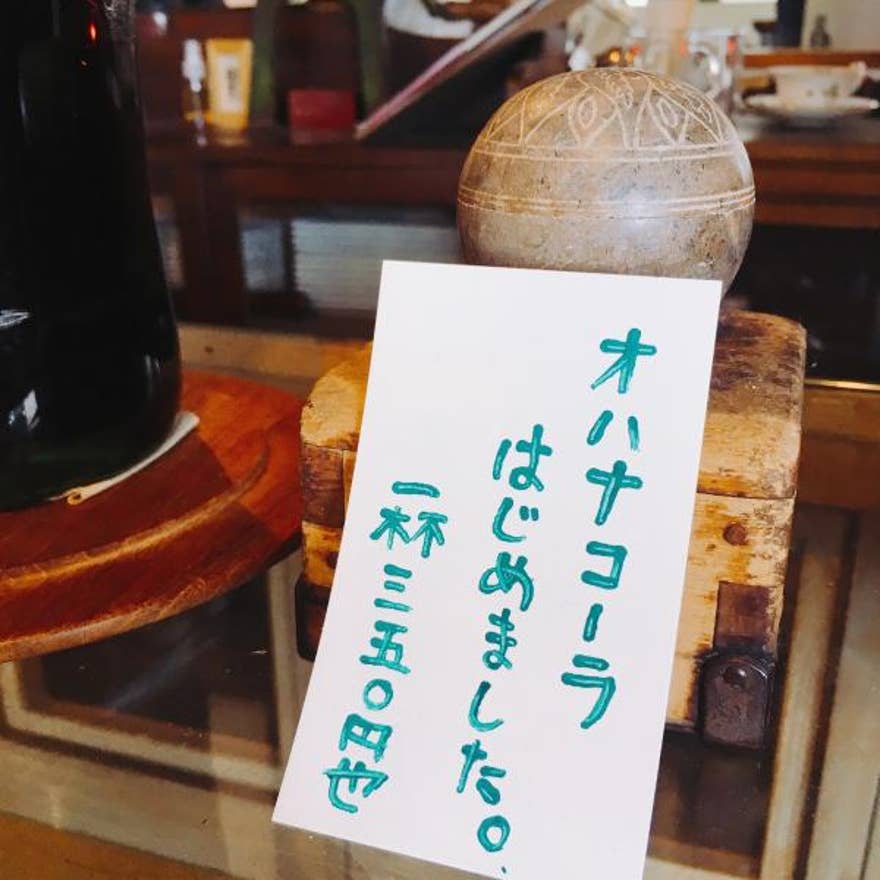 オハナコーラ
はじめました。
一杯三五〇円也